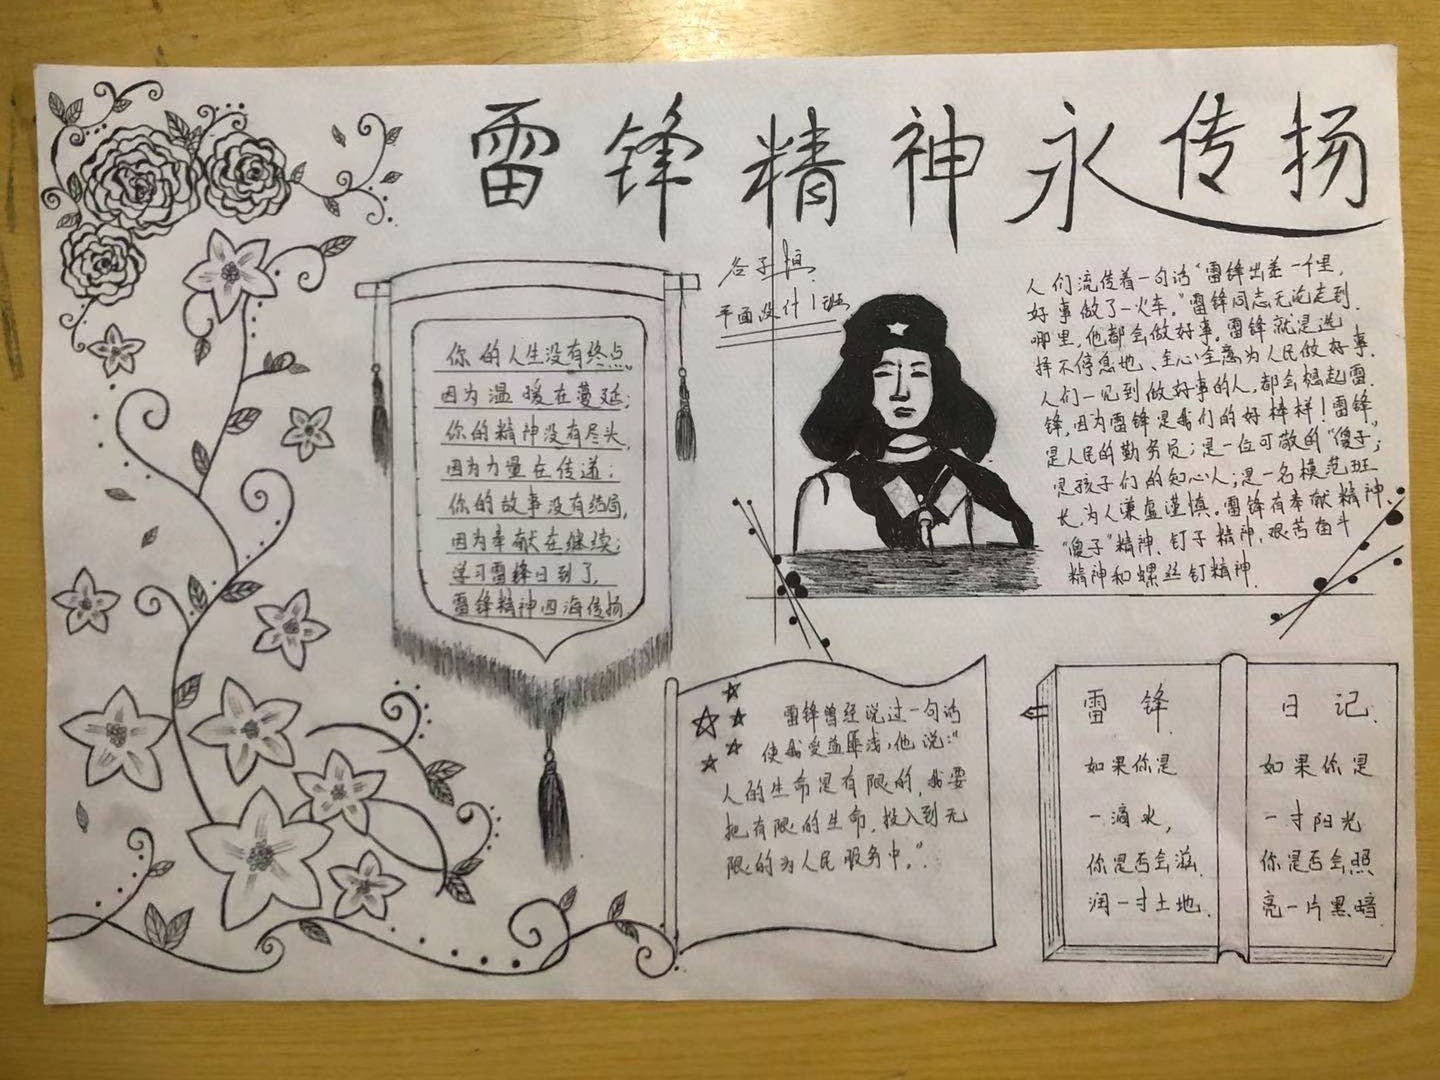 雷锋精神永传扬
谷子恒
平面设计1班
你的人生没有终点,
因为温暖在蔓延;
你的精神没有尽头,
因为力量在传递;
你的故事没有结局,
因为奉献在继续;
学习雷锋日到了,
雷锋精神四海传扬
人们流传着一句话“雷锋出差一千里,
好事做了一火车。”雷锋同志无论走到
哪里,他都会做好事。雷锋就是选
择不停息地、全心全意为人民做好事.
人们一见到做好事的人,都会想起雷
锋,因为雷锋是我们的好榜样!雷锋
是人民的勤务员;是一位可敬的“傻子”;
是孩子们的知心人;是一名模范班
长,为人谦虚谨慎。雷锋有奉献精神、
“傻子”精神、钉子精神,艰苦奋斗
精神和螺丝钉精神.
雷锋曾经说过一句话
使我受益匪浅,他说:“
人的生命是有限的,我要
把有限的生命,投入到无
限的为人民服务中。”
雷锋
如果你是
一滴水,
你是否会滋
润一寸土地.
日记.
如果你是
一寸阳光
你是否会照
亮一片黑暗